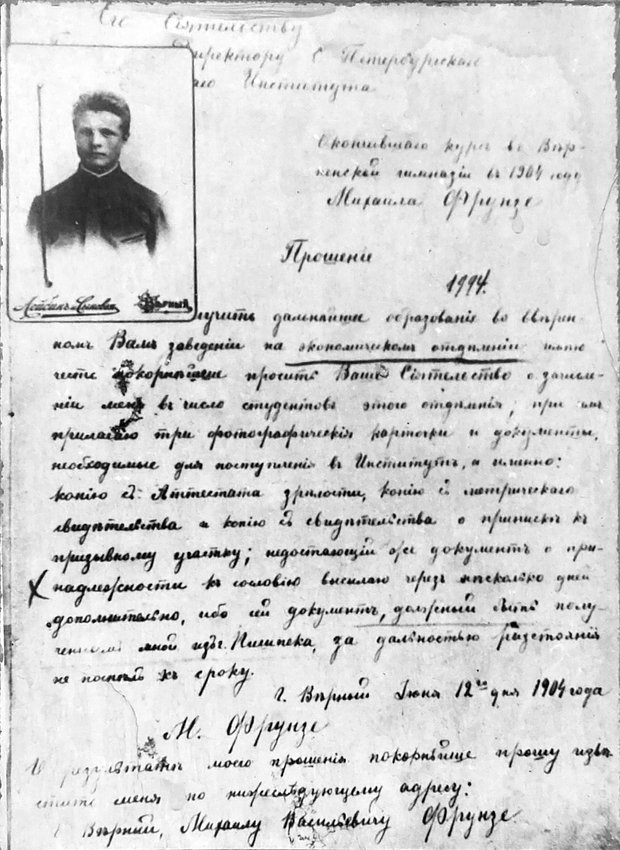 Его Сіятельству
Директору С Петербургскаго
Института
Окончившаго курсъ въ Вѣр-
ненской гимназіи въ 1904 году
Михаила Фрунзе
Прошеніе
1994.
Лейбинъ и Сыновья Вѣрный
лучить дальнейшее образованіе во ввѣрен-
номъ Вамъ заведеніи на экономическомъ отдѣленіи имѣю
честь покорнѣйше просить Ваше Сіятелество о зачисле-
ніи меня въ число студентовъ этого отдѣленія; при семъ
прилагаю три фотографическія карточки и документы,
необходимые для поступленія въ Институтъ, а именно:
копію съ Аттестата зрѣлости, копію съ метрическаго
свидѣтельства и копію съ свидѣтельства о припискѣ къ
призывному участку; недостающій же документъ о при-
надлежности къ сословію высылаю черезъ нѣсколько дней
дополнительно, ибо сей документъ, должный быть полу-
ченнымъ мной изъ г. Пишпека, за дальностью разстоянія
не поспѣлъ къ сроку.
Г. Вѣрный Іюня 12го дня 1904 года
М. Фрунзе
О результатѣ моего прошенія покорнѣйше прошу извѣ-
стить меня по нижеслѣдующему адресу:
г Вѣрный, Михаилу Васильевичу Фрунзе